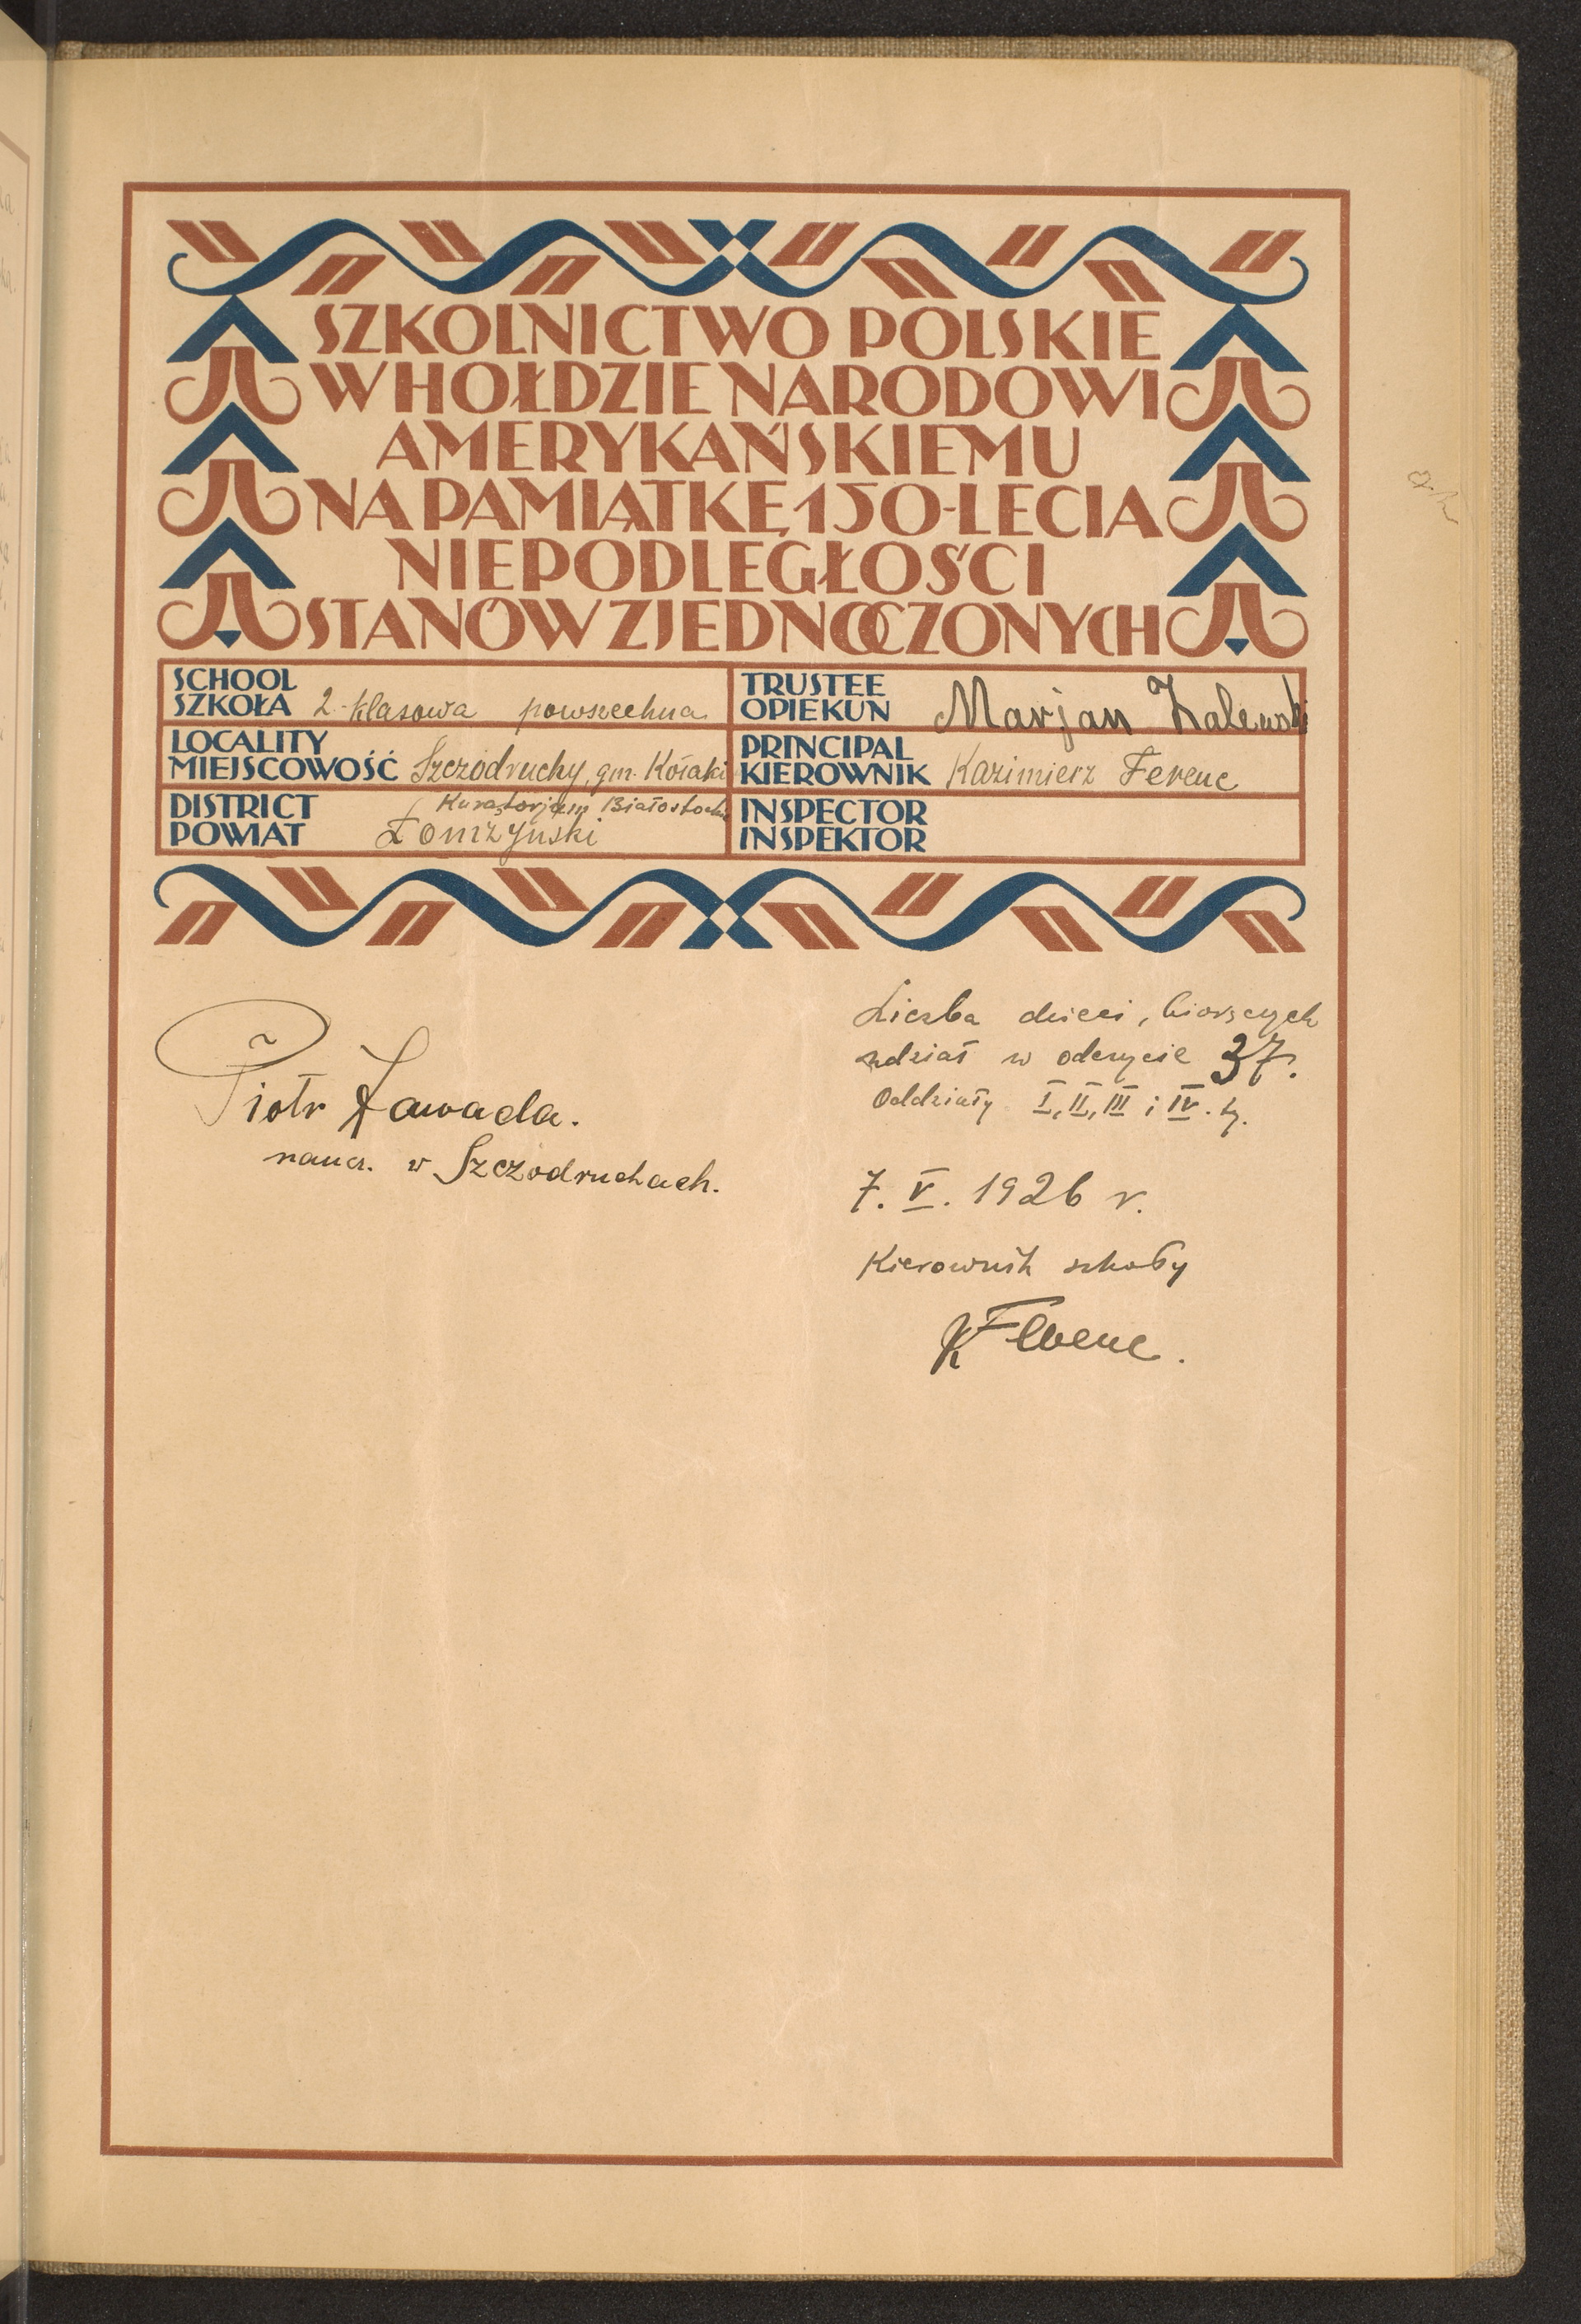 SZKOLNICTWO POLSKIE
W HOŁDZIE NARODOWI
AMERYKAŃSKIEMU
NA PAMIĄTKĘ 150-LECIA
NIEPODLEGŁOŚCI
STANÓW ZJEDNOCZONYCH
SCHOOL
SZKOŁA 2-klasowa powszechna
TRUSTEE
OPIEKUN Marjan Zalewski
LOCALITY
MIEJSCOWOŚĆ Szczodruchy, gm. Kołaki
PRINCIPAL
KIEROWNIK Kazimierz Ferenc
DISTRICT Kuratorjum Białostockie
POWIAT Łomżyński
INSPECTOR
INSPEKTOR
Piotr Zawada.
naucz. w Szczodruchach.
Liczba dzieci, biorących
udział w odczycie 37.
Oddziały I, II, III i IV-ty.
7. V. 1926 r.
Kierownik szkoły
K Ferenc.